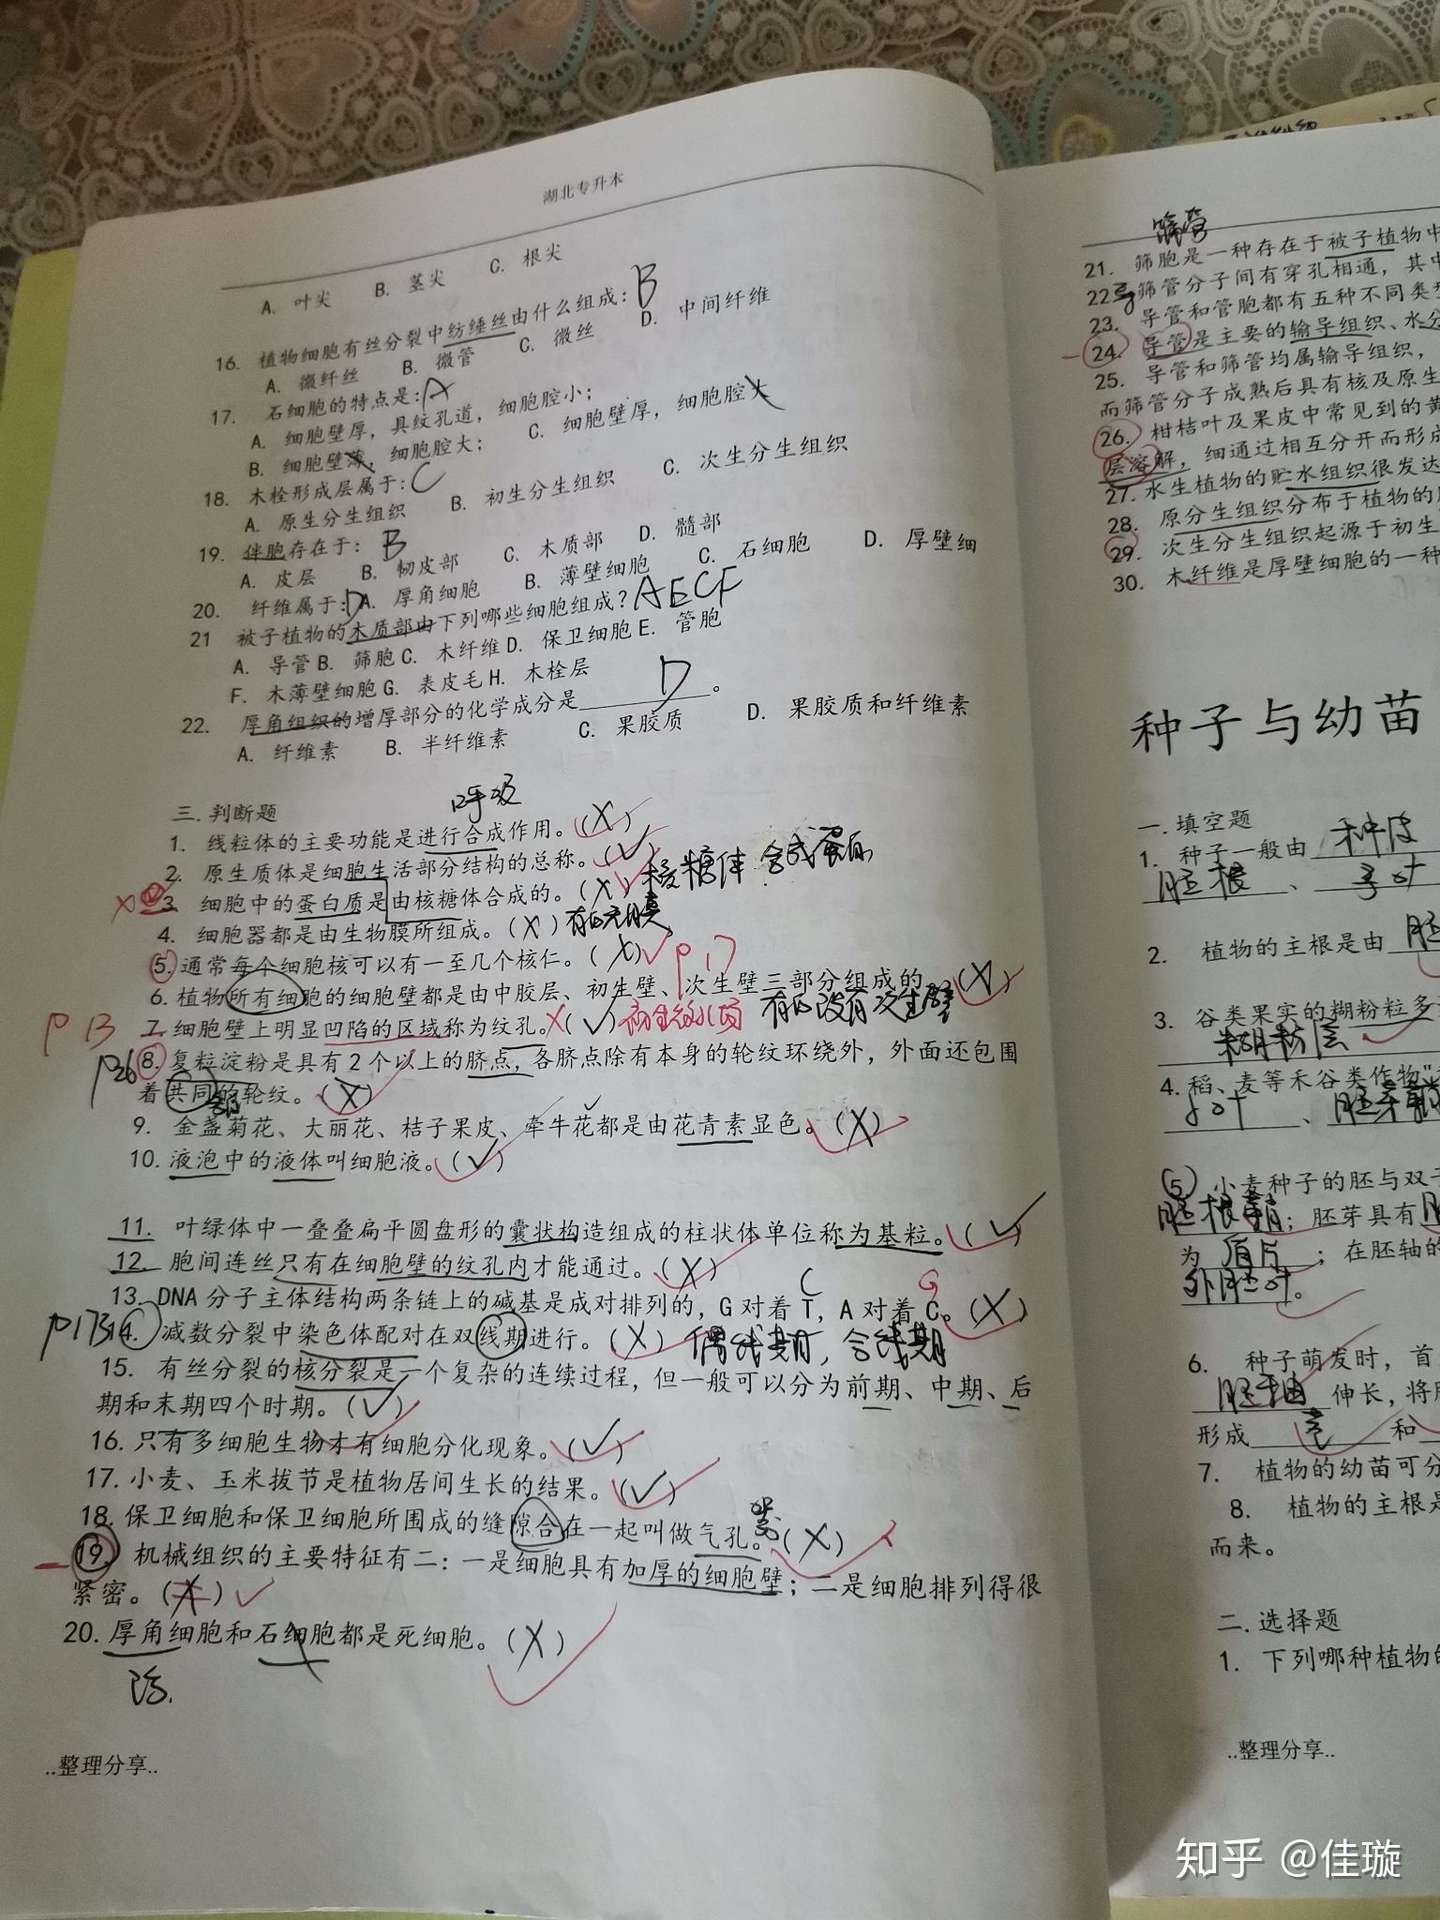 湖北专升本
A. 叶尖 B. 茎尖 C. 根尖
16. 植物细胞有丝分裂中纺缍丝由什么组成：B
A. 微纤丝 B. 微管 C. 微丝 D. 中间纤维
17. 石细胞的特点是：A
A. 细胞壁厚，具纹孔道，细胞腔小；
B. 细胞壁薄，细胞腔大； C. 细胞壁厚，细胞腔大
18. 木栓形成层属于：C
A. 原生分生组织 B. 初生分生组织 C. 次生分生组织
19. 伴胞存在于： B
A. 皮层 B. 韧皮部 C. 木质部 D. 髓部
20. 纤维属于：D A. 厚角细胞 B. 薄壁细胞 C. 石细胞 D. 厚壁细
21 被子植物的木质部由下列哪些细胞组成？AECF
A. 导管 B. 筛胞 C. 木纤维 D. 保卫细胞 E. 管胞
F. 木薄壁细胞 G. 表皮毛 H. 木栓层
22. 厚角组织的增厚部分的化学成分是 D 。
A. 纤维素 B. 半纤维素 C. 果胶质 D. 果胶质和纤维素
三.判断题
呼吸
1. 线粒体的主要功能是进行合成作用。（X）
2. 原生质体是细胞生活部分结构的总称。（√）
3. 细胞中的蛋白质是由核糖体合成的。（X）核糖体 合成蛋白
4. 细胞器都是由生物膜所组成。（X）有的无膜
5. 通常每个细胞核可以有一至几个核仁。（X）√ P17
6. 植物所有细胞的细胞壁都是由中胶层、初生壁、次生壁三部分组成的。（X）
有的没有次生壁
P13
7. 细胞壁上明显凹陷的区域称为纹孔。X（√）
P26
8. 复粒淀粉是具有2个以上的脐点，各脐点除有本身的轮纹环绕外，外面还包围
着共同的轮纹。（X）
9. 金盏菊花、大丽花、桔子果皮、牵牛花都是由花青素显色。（X）
10. 液泡中的液体叫细胞液。（√）
11. 叶绿体中一叠叠扁平圆盘形的囊状构造组成的柱状体单位称为基粒。（√）
12. 胞间连丝只有在细胞壁的纹孔内才能通过。（X）
C G
13. DNA分子主体结构两条链上的碱基是成对排列的，G对着T，A对着C。（X）
P173
14. 减数分裂中染色体配对在双线期进行。（X） 偶线期，合线期
15. 有丝分裂的核分裂是一个复杂的连续过程，但一般可以分为前期、中期、后
期和末期四个时期。（√）
16. 只有多细胞生物才有细胞分化现象。（√）
17. 小麦、玉米拔节是植物居间生长的结果。（√）
18. 保卫细胞和保卫细胞所围成的缝隙合在一起叫做气孔。（X）
19. 机械组织的主要特征有二：一是细胞具有加厚的细胞壁；二是细胞排列得很
紧密。（X）√
20. 厚角细胞和石细胞都是死细胞。（X）
活.
..整理分享..
筛管
21. 筛胞是一种存在于被子植物中
22 筛管分子间有穿孔相通，其中
23. 导管和管胞都有五种不同类型
24. 导管是主要的输导组织、水分
25. 导管和筛管均属输导组织，
而筛管分子成熟后具有核及原生
26. 柑桔叶及果皮中常见到的黄
层溶解，细通过相互分开而形成
27. 水生植物的贮水组织很发达
28. 原分生组织分布于植物的
29. 次生分生组织起源于初生
30. 木纤维是厚壁细胞的一种
种子与幼苗
一.填空题
1. 种子一般由 种皮
胚根 、 子叶
2. 植物的主根是由 胚
3. 谷类果实的糊粉粒多
糊粉层
4. 稻、麦等禾谷类作物“
子叶 、 胚芽鞘
5. 小麦种子的胚与双子
胚根鞘；胚芽具有 胚
为 盾片 ；在胚轴的
外胚叶 。
6. 种子萌发时，首
胚轴 伸长，将胚
形成 茎 和
7. 植物的幼苗可分
8. 植物的主根是
而来。
二.选择题
1. 下列哪种植物的
..整理分享..
知乎 @佳璇